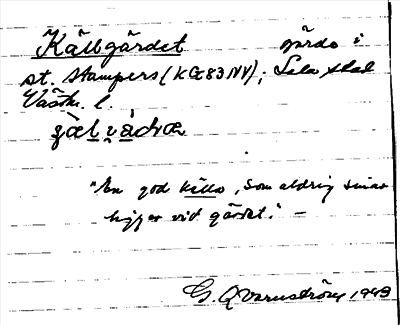 Källgärdet gärde i
st. Stampers (KG83NV); Sala stad
Västm. l.
"En god källa, som aldrig sinar
ligger vid gärdet." —
G. Qvarnström 1943